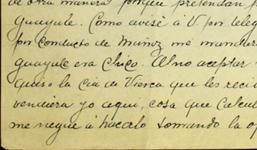 de otra manera porque pretendan p
guayule. Como avisé á V por teleg
por conducto de Muñoz me mandaran
guayule era Chico. Al no aceptar
quiso la Cía de Viesca que les reci
vendiera yo aquí, cosa que calcul
me negué á hacerlo tomando la op